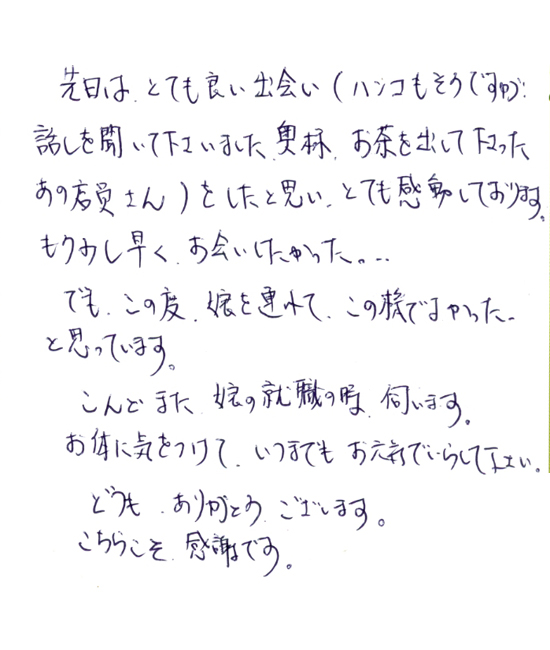 先日は、とても良い出会い(ハンコもそうですが、
話しを聞いて下さいました、奥様、お茶を出して下さった
あの店員さん)をしたと思い、とても感動しております。
もう少し早く、お会いしたかった。...
でも、この度、娘を連れて、この様でよかった
と思っています。
こんどまた、娘の就職の時、伺います。
お体に気をつけて、いつまでもお元気でいらして下さい。
どうも、ありがとうございます。
こちらこそ、感謝です。